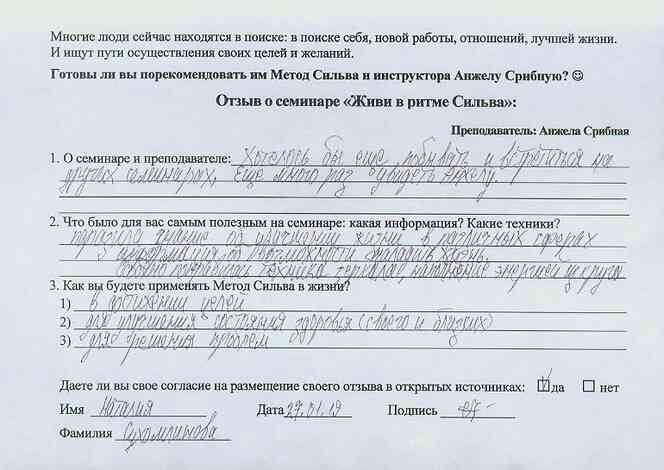 Многие люди сейчас находятся в поиске: в поиске себя, новой работы, отношений, лучшей жизни.
И ищут пути осуществления своих целей и желаний.
Готовы ли вы порекомендовать им Метод Сильва и инструктора Анжелу Срибную? ☺
Отзыв о семинаре «Живи в ритме Сильва»:
Преподаватель: Анжела Срибная
1. О семинаре и преподавателе: Хотелось бы еще побывать и встретиться на
других семинарах. Еще много раз увидеть Анжелу.
2. Что было для вас самым полезным на семинаре: какая информация? Какие техники?
знание об изменении жизни в различных сферах
информация о возможности жизнь.
техника зеркала, наполнение энергией из круга
3. Как вы будете применять Метод Сильва в жизни?
1) в достижении целей
2) для улучшения состояния здоровья (своего и близких)
3) для решения проблем
Даете ли вы свое согласие на размещение своего отзыва в открытых источниках: да нет
Имя Наталия Дата 27.01.19 Подпись
Фамилия Сухомлинова